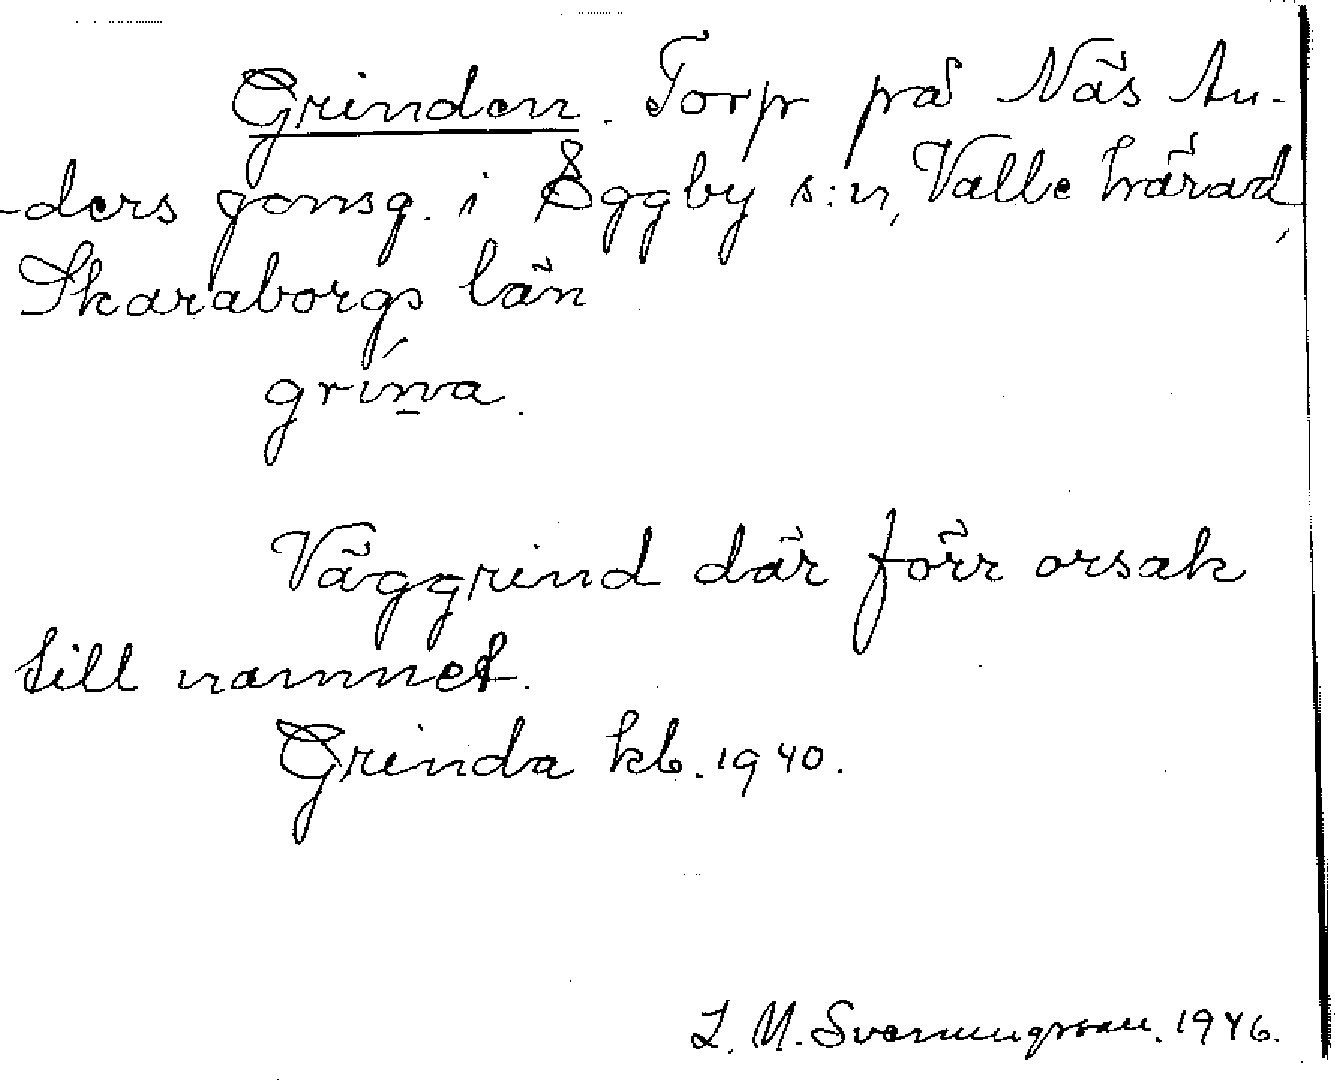 Grinden. Torp på Näs An-
-ders jonsg. i Eggby s:n, Valle härad,
Skaraborgs län
grína.
Väggrind där förr orsak
till namnet.
Grinda kb. 1940.
L. M. Svenungsson. 1946.